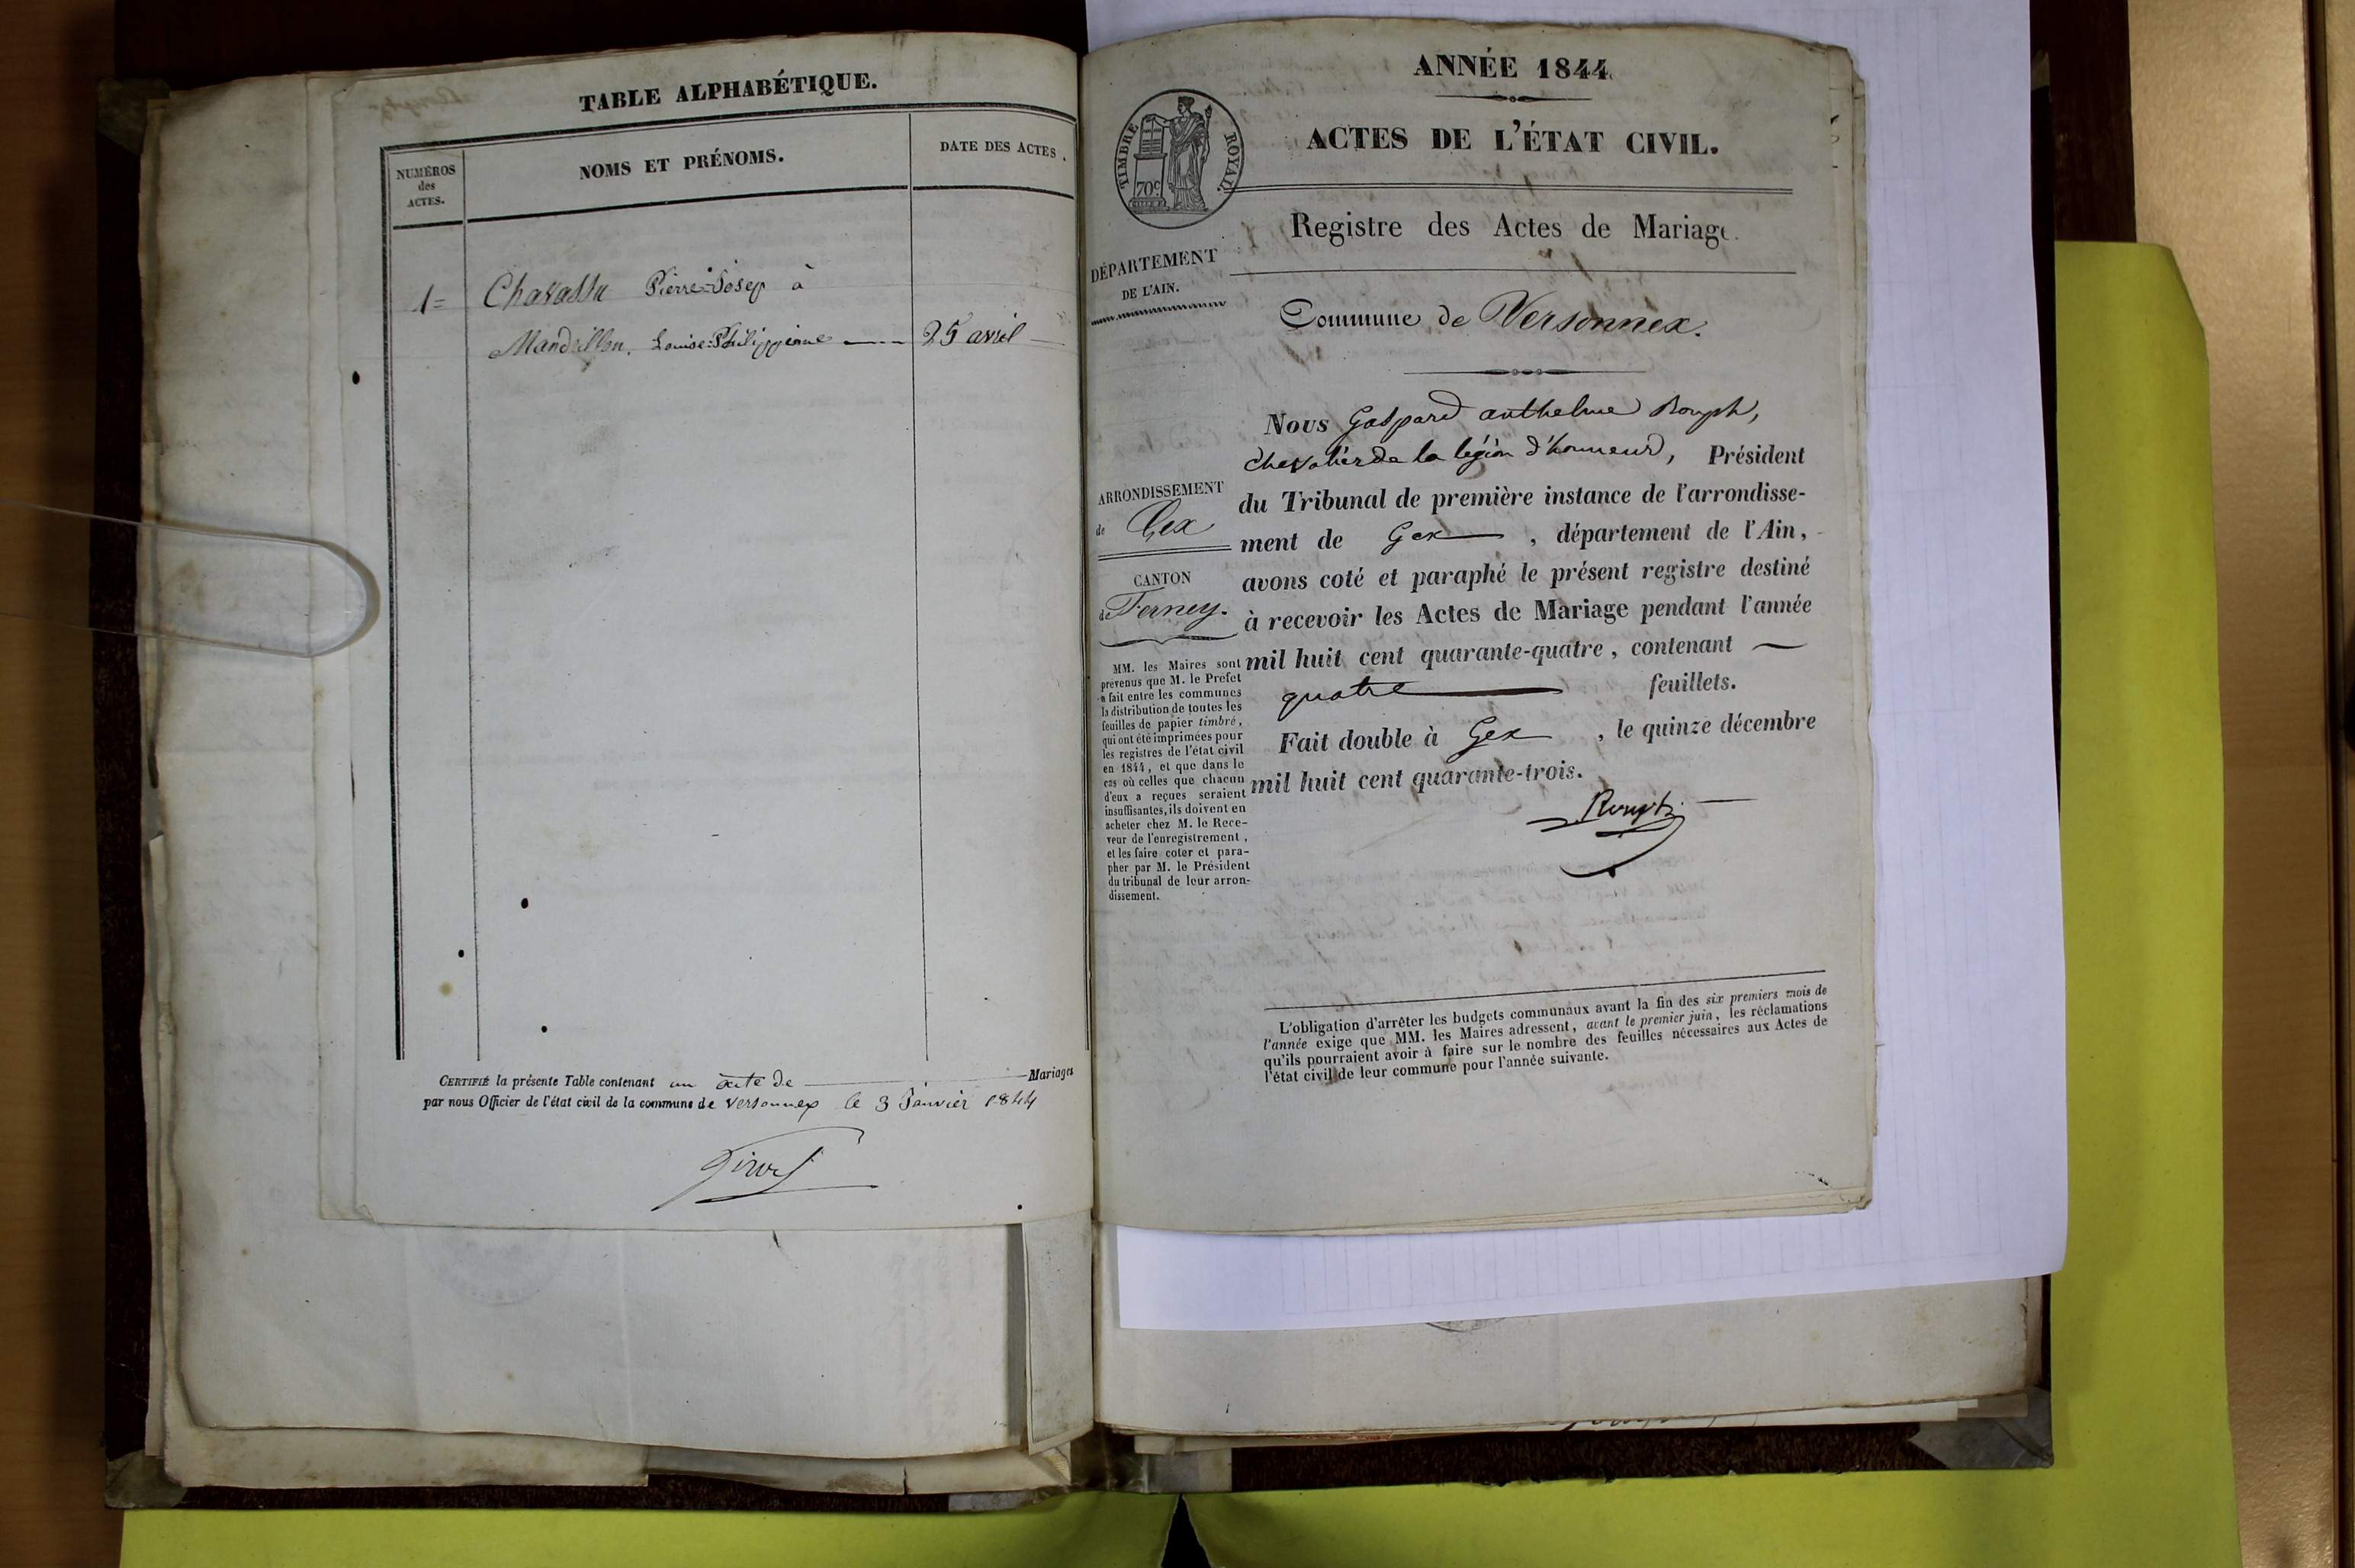 TABLE ALPHABÉTIQUE.
NUMÉROS
des
ACTES.
NOMS ET PRÉNOMS.
DATE DES ACTES.
1= Chavassu Pierre=Josep à
Mandrillon, Louise=Philippine 25 avril
CERTIFIÉ la présente Table contenant un acte de Mariages
par nous Officier de l'état civil de la commune de Versonnex le 3 Janvier 1844
Girod
ANNÉE 1844.
TIMBRE ROYAL.
70c
ACTES DE L'ÉTAT CIVIL.
Registre des Actes de Mariage.
DÉPARTEMENT
DE L'AIN.
Commune de Versonnex.
ARRONDISSEMENT
de Gex
CANTON
de Ferney.
MM. les Maires sont
prévenus que M. le Préfet
a fait entre les communes
la distribution de toutes les
feuilles de papier timbré,
qui ont été imprimées pour
les registres de l'état civil
en 1844, et que dans le
cas où celles que chacun
d'eux a reçues seraient
insuffisantes, ils doivent en
acheter chez M. le Rece-
veur de l'enregistrement,
et les faire coter et para-
pher par M. le Président
du tribunal de leur arron-
dissement.
Nous Gaspard anthelme Rouph,
chevalier de la légion d'honneur, Président
du Tribunal de première instance de l'arrondisse-
ment de Gex, département de l'Ain,
avons coté et paraphé le présent registre destiné
à recevoir les Actes de Mariage pendant l'année
mil huit cent quarante-quatre, contenant
quatre feuillets.
Fait double à Gex, le quinze décembre
mil huit cent quarante-trois.
Rouph
L'obligation d'arrêter les budgets communaux avant la fin des six premiers mois de
l'année exige que MM. les Maires adressent, avant le premier juin, les réclamations
qu'ils pourraient avoir à faire sur le nombre des feuilles nécessaires aux Actes de
l'état civil de leur commune pour l'année suivante.